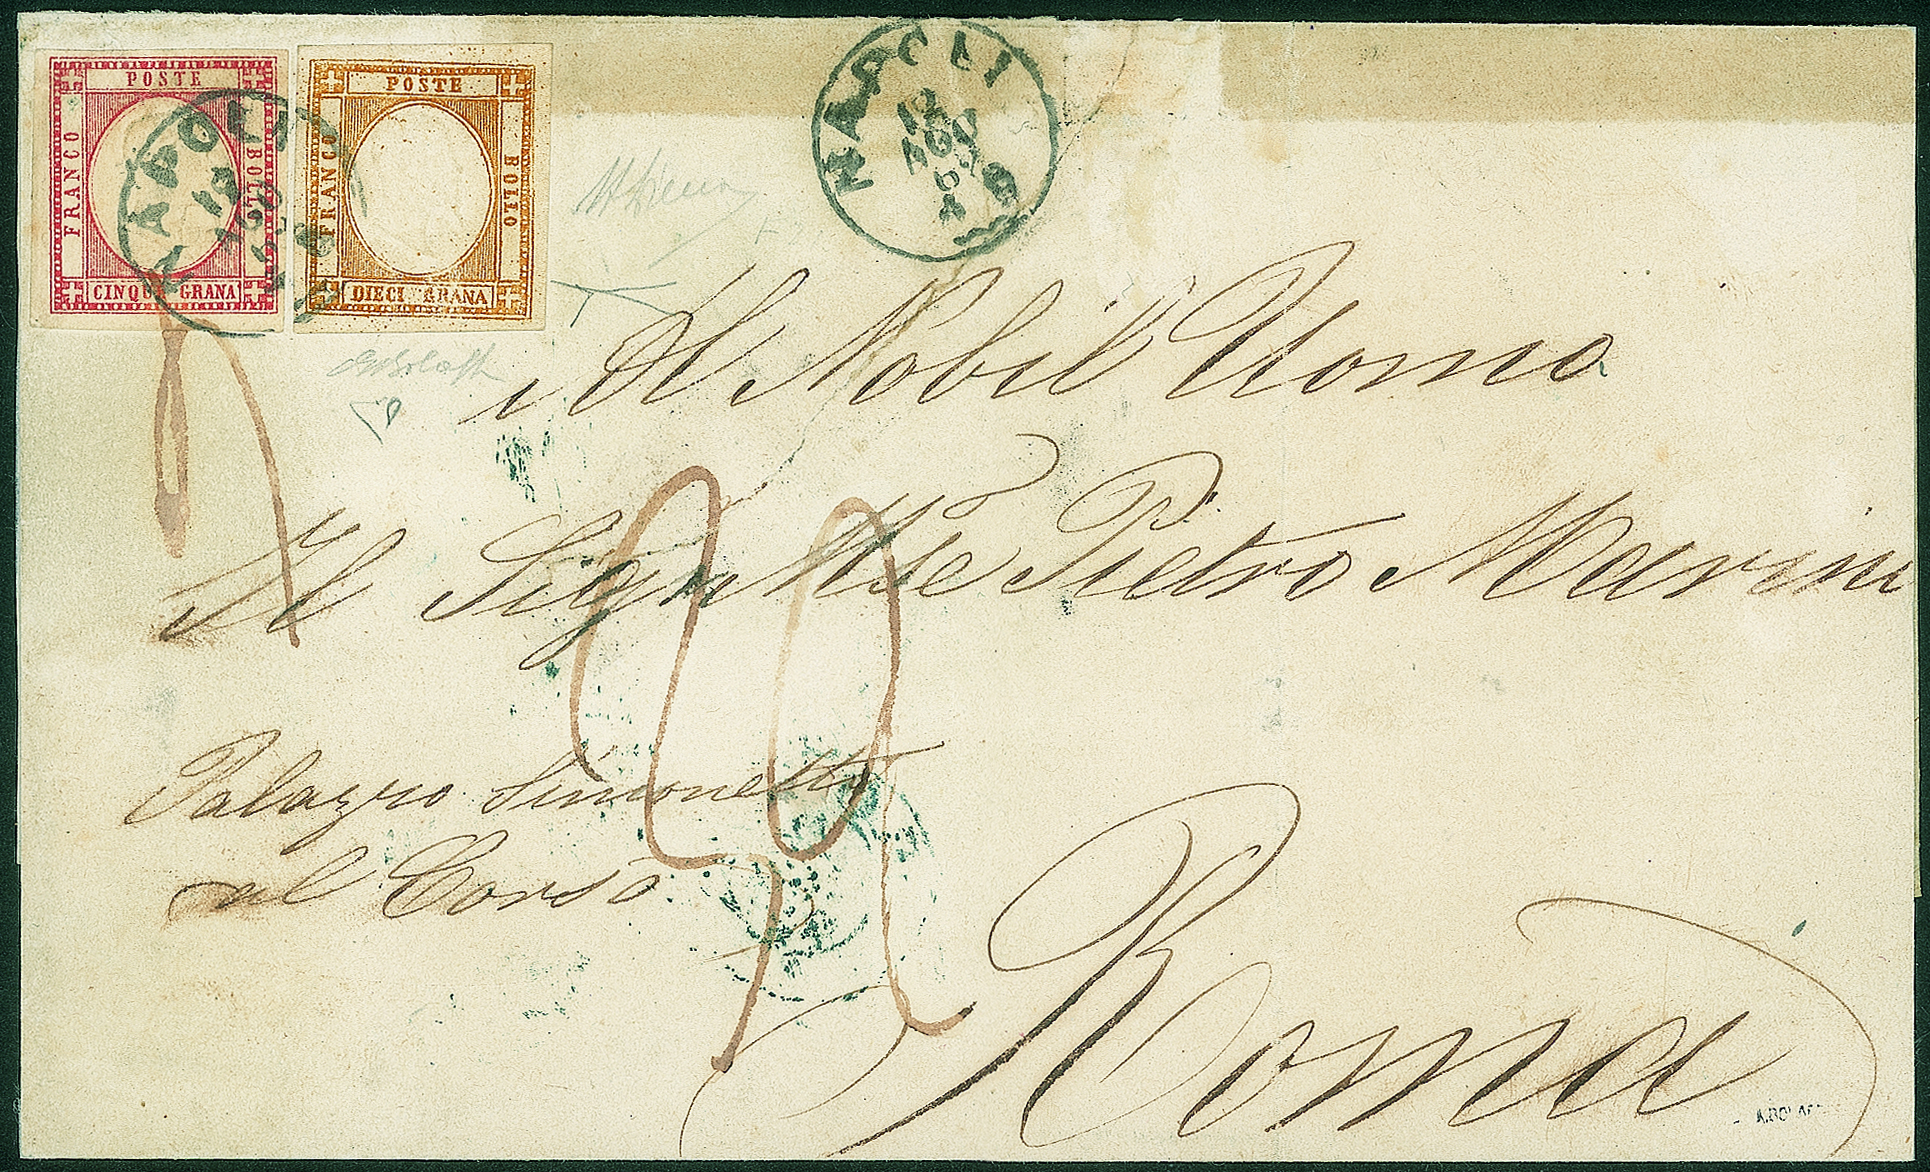 POSTE
FRANCO
BOLLO
CINQUE GRANA
POSTE
FRANCO
BOLLO
DIECI GRANA
NAPOLI
12
AGO
NAPOLI
12
AGO
61
Al Nobil Uomo
Il Sigr Mse Pietro Marini
Palazzo Simonetti
al Corso
Roma
A.BOLAF